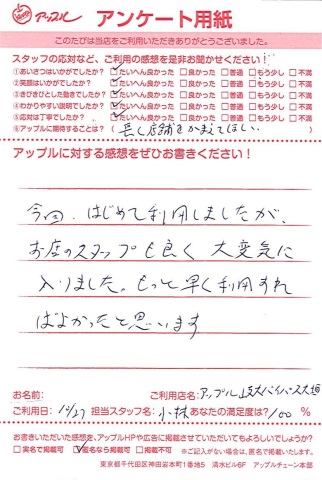 アップル アンケート用紙
このたびは当店をご利用いただきありがとうございました。
スタッフの応対など、ご利用の感想を是非お聞かせください!
①あいさつはいかがでしたか? ☑たいへん良かった □良かった □普通 □もう少し □不満
②笑顔はいかがでしたか? ☑たいへん良かった □良かった □普通 □もう少し □不満
③きびきびとした動きでしたか? ☑たいへん良かった □良かった □普通 □もう少し □不満
④わかりやすい説明でしたか? ☑たいへん良かった □良かった □普通 □もう少し □不満
⑤応対は丁寧でしたか? ☑たいへん良かった □良かった □普通 □もう少し □不満
⑥アップルに期待することは? ( 長く店舗をかまえてほしい。 )
アップルに対する感想をぜひお書きください!
今回、はじめて利用しましたが、
お店のスタッフも良く 大変気に
入りました。もっと早く利用すれ
ばよかったと思います
お名前: ご利用店名: アップル 岐大バイパス大垣
ご利用日: 10/27 担当スタッフ名: 小林 あなたの満足度は? 100 %
お書きいただいた感想を、アップルHPや広告に掲載させていただいてもよろしいでしょうか?
□実名で掲載可 ☑匿名なら掲載可 □掲載不可 ※ご記入がない場合は、匿名で掲載いたします。
東京都千代田区神田岩本町1番地5 清水ビル6F アップルチェーン本部